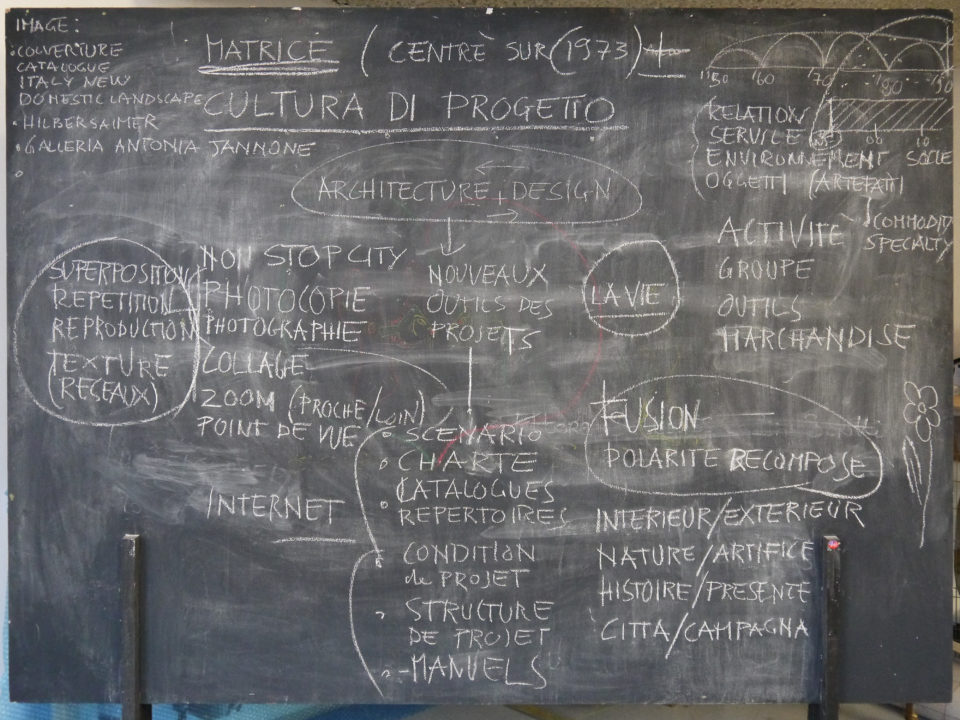 IMAGE:
COUVERTURE
CATALOGUE
ITALY NEW
DOMESTIC LANDSCAPE
• HILBERSAIMER
• GALLERIA ANTONIA JANNONE
MATRICE (CENTRÈ SUR (1973)
CULTURA DI PROGETTO
ARCHITECTURE + DESIGN
'60 '70 '80 '90
RELATION
SERVICE
ENVIRONNEMENT SOCLE
OGGETTI (ARTEFATTI
COMMODITY
SPECIALTY
ACTIVITE
GROUPE
OUTILS
MARCHANDISE
SUPERPOSITION
REPETITION
REPRODUCTION
TEXTURE
(RESEAUX)
NON STOP CITY
PHOTOCOPIE
PHOTOGRAPHIE
COLLAGE
ZOOM (PROCHE/LOIN)
POINT DE VUE
INTERNET
NOUVEAUX
OUTILS DES
PROJETS
LA VIE
• SCENARIO
• CHARTE
• CATALOGUES
REPERTOIRES
• CONDITION
de PROJET
• STRUCTURE
DE PROJET
• -MANUELS
FUSION
POLARITE RECOMPOSE
INTERIEUR/EXTERIEUR
NATURE/ARTIFICE
HISTOIRE/PRESENTE
CITTA/CAMPAGNA